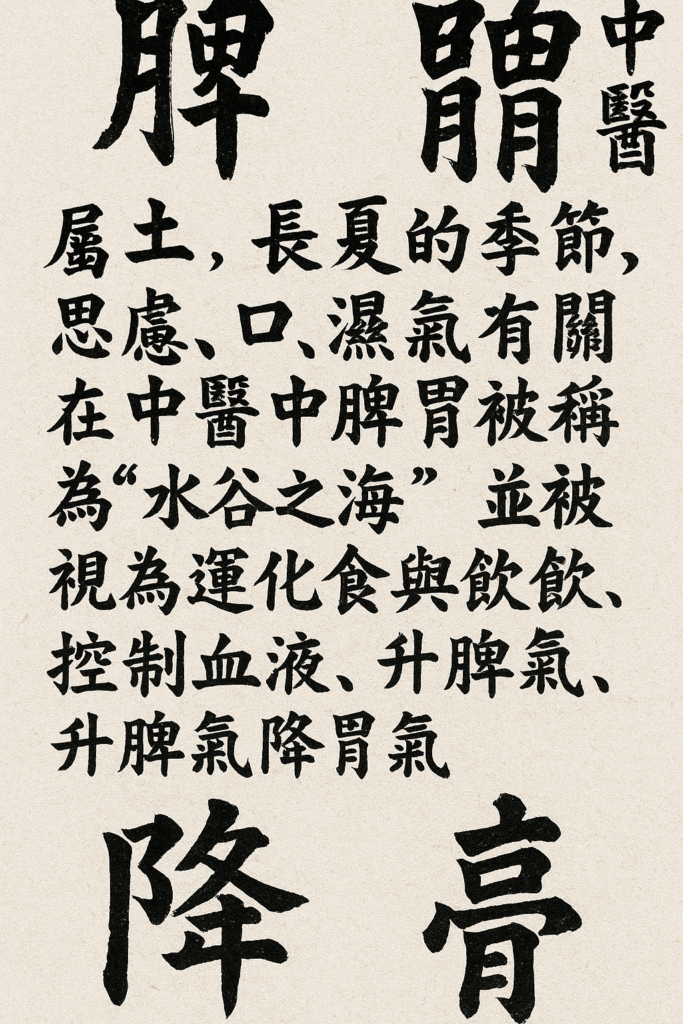 脾 中醫
屬土,長夏的季節,
思慮、口、濕氣有關
在中醫中脾胃被稱
為“水谷之海” 並被
視為運化食與飲飲、
控制血液、升脾氣、
升脾氣降胃氣
降 膏